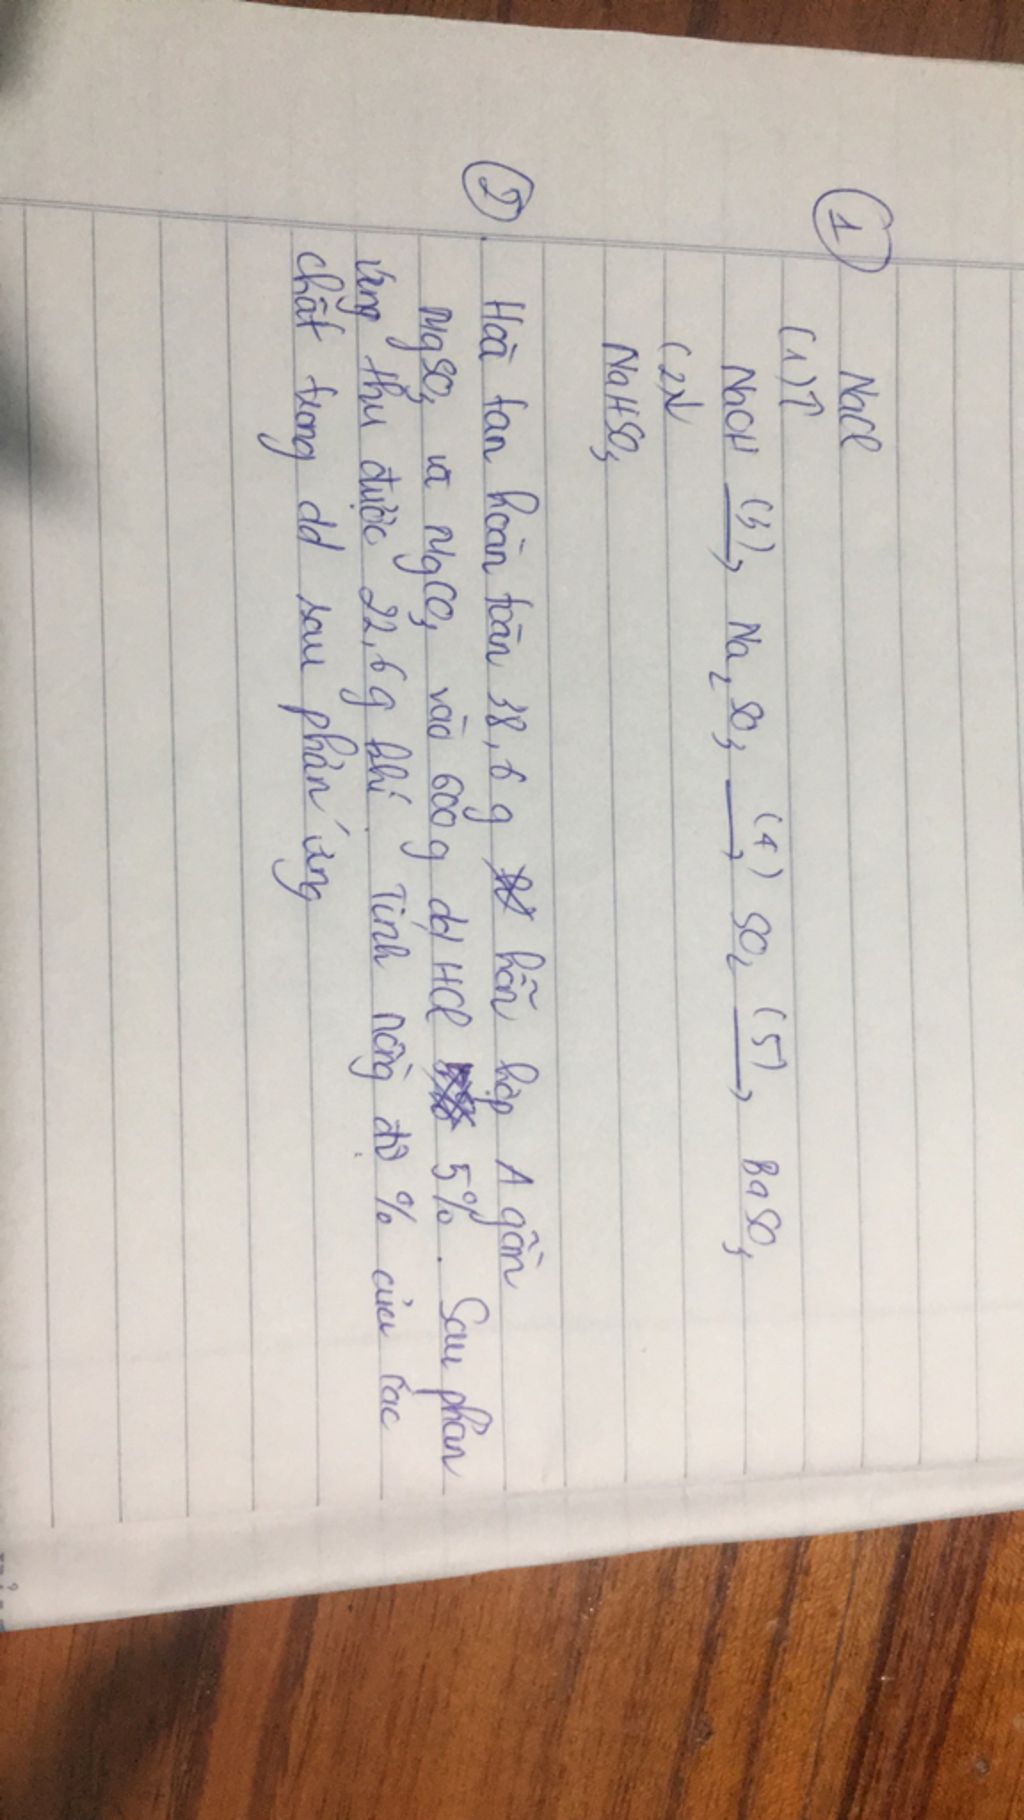 ①
NaCl
(1)↑
NaOH (3)→ Na2SO3 (4)→ SO2 (5)→ BaSO3
(2)↓
NaHSO3
② Hoà tan hoàn toàn 38,6 g hỗn hợp A gồm
MgSO3 và MgCO3 vào 600 g dd HCl 5%. Sau phản
ứng thu được 22,6 g khí. Tính nồng độ % của các
chất trong dd sau phản ứng